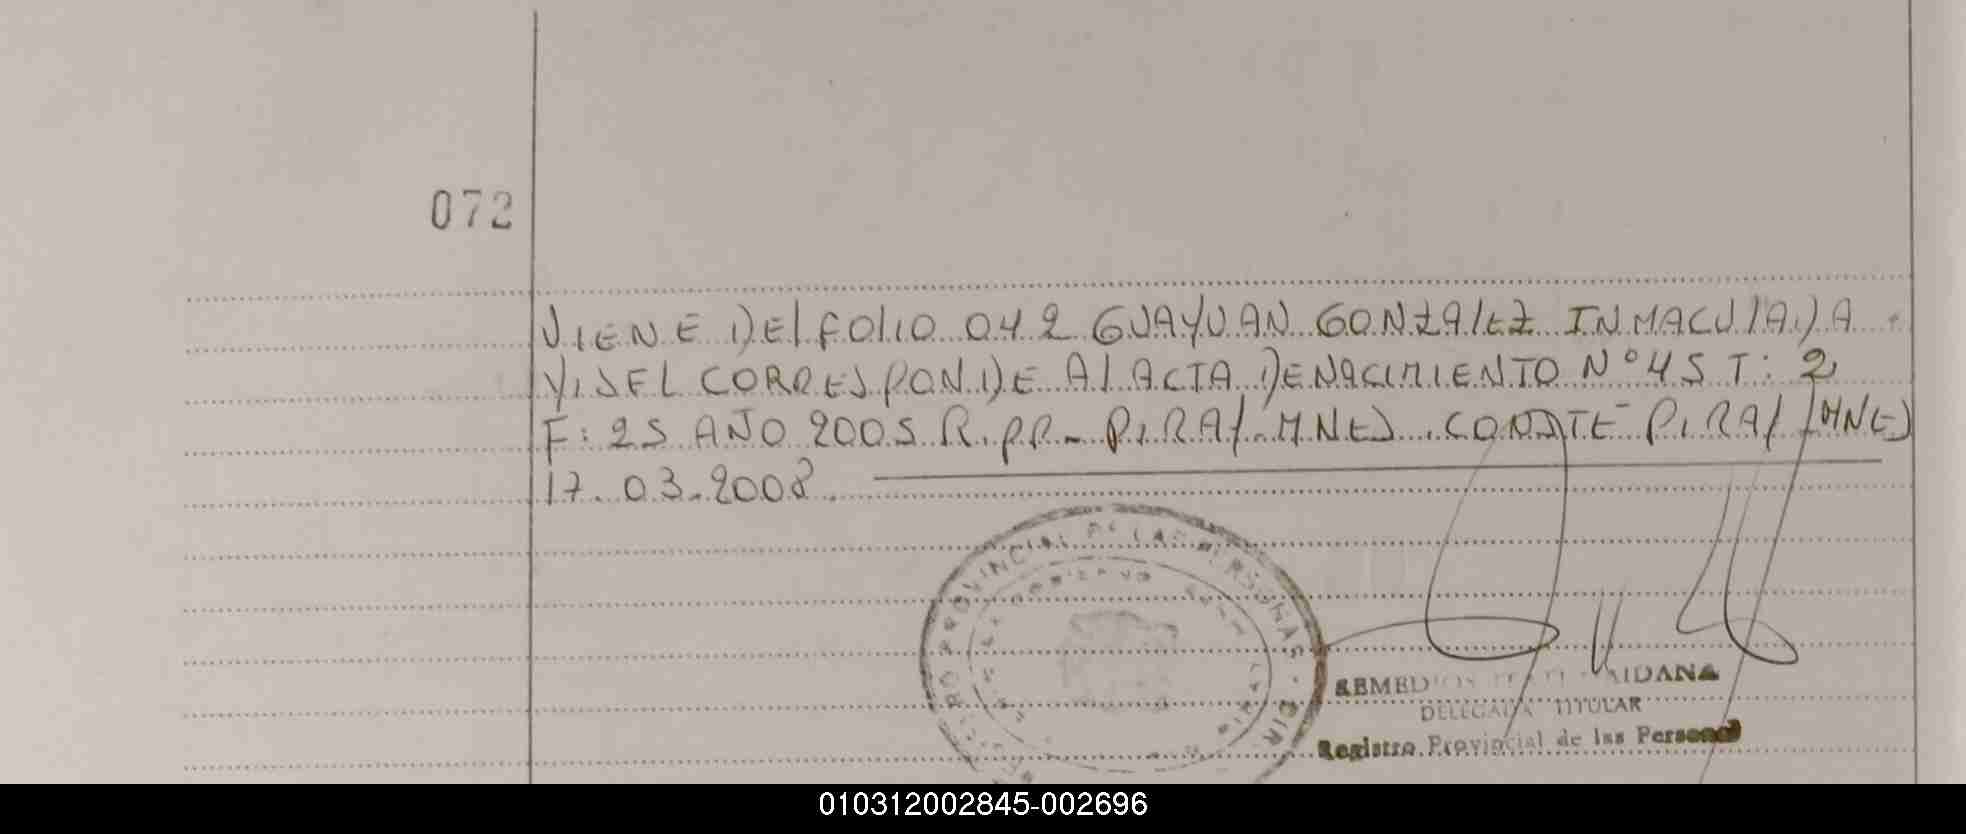 072
VIENE DEL FOLIO 042 GUAYUAN GONZALEZ INMACULADA
YISEL CORRESPONDE AL ACTA DE NACIMIENTO N° 45 T: 2
F: 25 AÑO 2005 R.PP- PIRAY-MNES. CONSTE PIRAY MNES
17.03.2008
PROVINCIAL DE LAS PERSONAS
REMEDIOS MAIDANA
DELEGADA TITULAR
Registro Provincial de las Personas
010312002845-002696